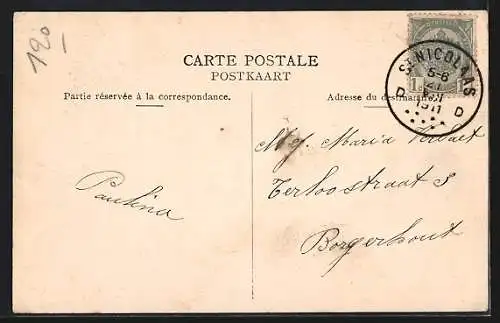 120
CARTE POSTALE
POSTKAART
Partie réservée à la correspondance.
Adresse du destinataire.
ST NICOLAAS
5-6
21
1911
D D
Maria
Paulina
Terloostraat
Borgerhout